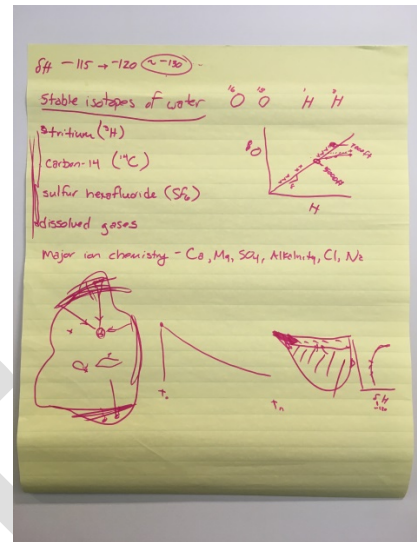 δH -115 → -120 ~ -130
Stable isotopes of water ¹⁶O ¹⁸O ¹H ²H
tritium (³H)
carbon-14 (¹⁴C)
sulfur hexafluoride (SF₆)
dissolved gases
major ion chemistry - Ca, Mg, SO₄, Alkalinity, Cl, Na
O
H
δH
-130